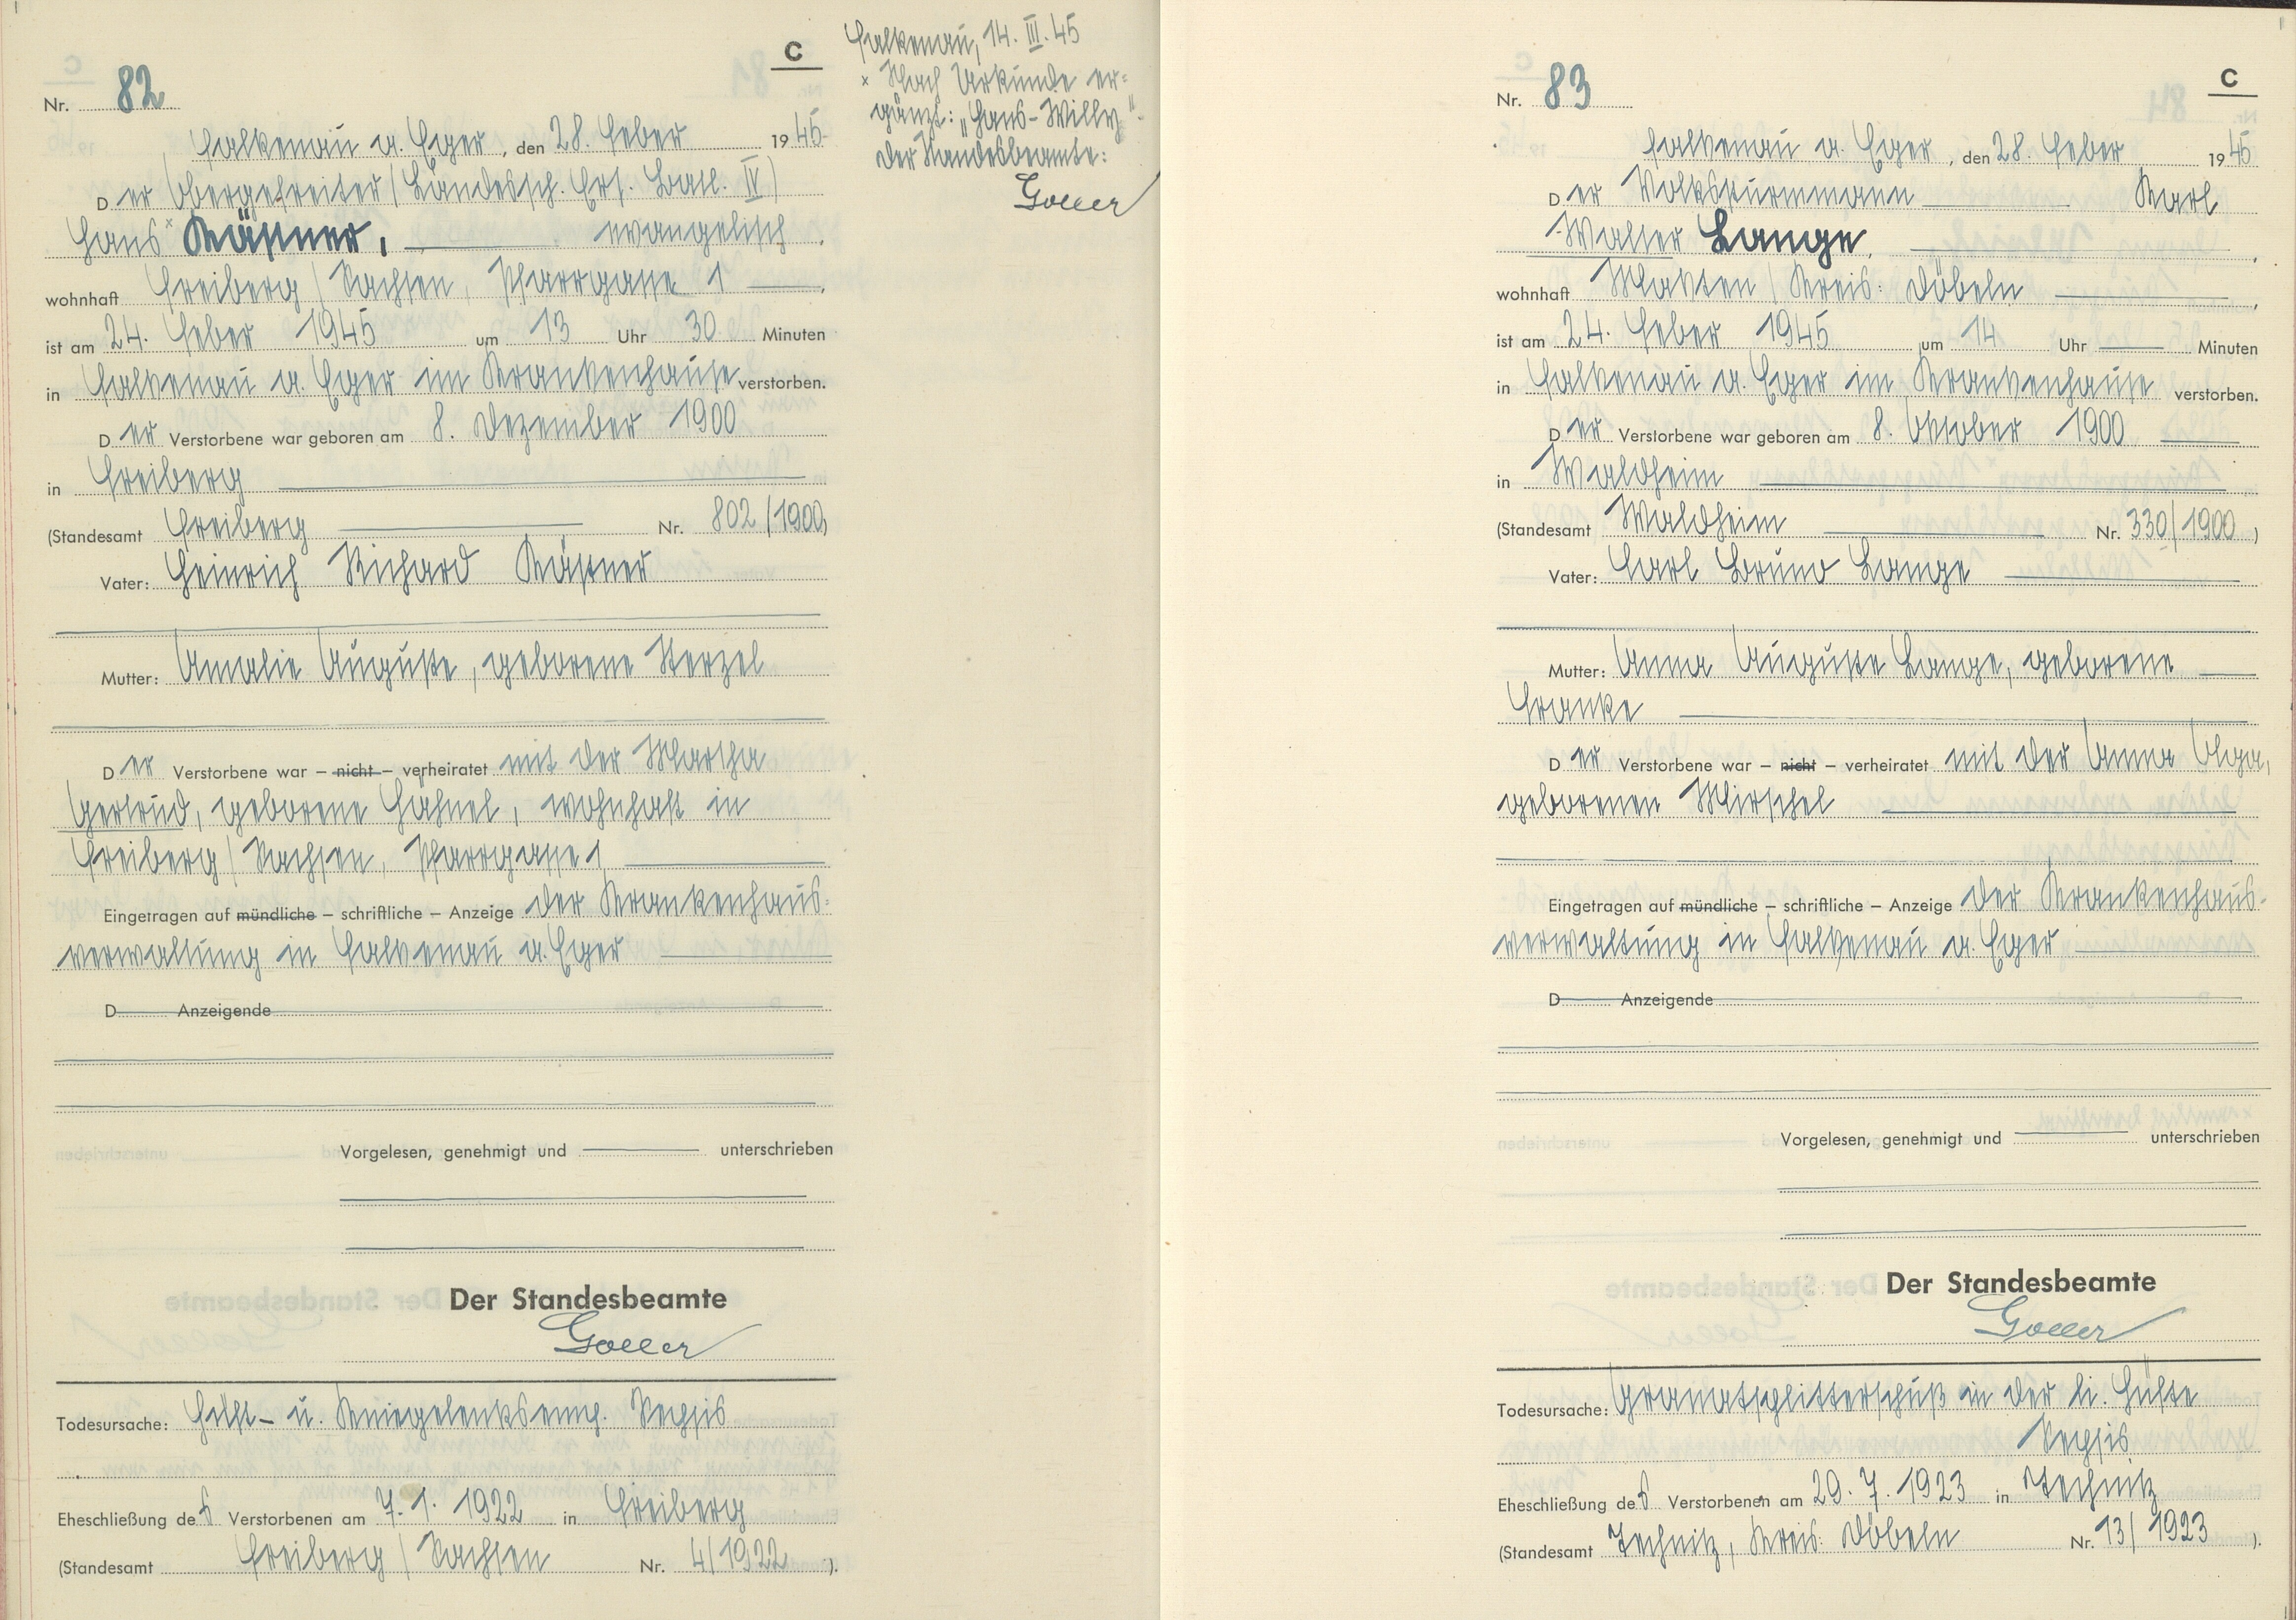 C
Nr. 82
Falkenau a. Eger, den 28. Feber 1945
Der Obergefreiter (Landessch. Ers. Batl. IV)
Hans × Kästner, evangelisch,
wohnhaft Freiberg / Sachsen, Pfarrgasse 1,
ist am 24. Feber 1945 um 13 Uhr 30 Minuten
in Falkenau a. Eger im Krankenhause verstorben.
Der Verstorbene war geboren am 8. Dezember 1900
in Freiberg
(Standesamt Freiberg Nr. 802/1900)
Vater: Heinrich Richard Kästner
Mutter: Amalie Auguste, geborene Sterzel
Der Verstorbene war – nicht – verheiratet mit der Martha
Gertrud, geborene Hähnel, wohnhaft in
Freiberg / Sachsen, Pfarrgasse 1
Eingetragen auf mündliche – schriftliche – Anzeige der Krankenhaus=
verwaltung in Falkenau a. Eger
D Anzeigende
Vorgelesen, genehmigt und unterschrieben
Der Standesbeamte
Goller
Todesursache: Hüft- u. Kniegelenks Sepsis
Eheschließung des Verstorbenen am 7. 1. 1922 in Freiberg
(Standesamt Freiberg / Sachsen Nr. 4/1922).
Falkenau, 14. III. 45
× Nach Urkunde er=
gänzt: „Hans-Willy".
Der Standesbeamte:
Goller
C
Nr. 83
Falkenau a. Eger, den 28. Feber 1945
Der Volkssturmmann Karl
Walter Lange,
wohnhaft Masten / Kreis: Döbeln,
ist am 24. Feber 1945 um 14 Uhr Minuten
in Falkenau a. Eger im Krankenhause verstorben.
Der Verstorbene war geboren am 8. Oktober 1900
in Waldheim
(Standesamt Waldheim Nr. 330/1900)
Vater: Carl Bruno Lange
Mutter: Anna Auguste Lange, geborene
Franke
Der Verstorbene war – nicht – verheiratet mit der Anna Olga,
geborenen Mirschel
Eingetragen auf mündliche – schriftliche – Anzeige der Krankenhaus-
verwaltung in Falkenau a. Eger
D Anzeigende
Vorgelesen, genehmigt und unterschrieben
Der Standesbeamte
Goller
Todesursache: Granatsplitterschuß in der li. Hüfte
Sepsis
Eheschließung des Verstorbenen am 29. 7. 1923 in Technitz
(Standesamt Technitz, Kreis: Döbeln Nr. 13/1923).